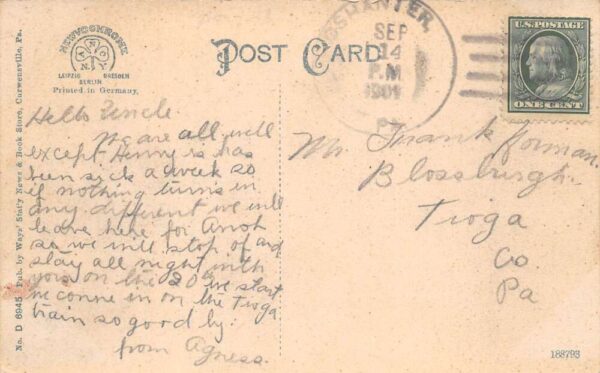 No. D 6945 Pub. by Ways' Sta'y News & Book Store, Curwensville, Pa.
NEWVOCHROME
A N C
N.Y.
LEIPZIG DRESDEN
BERLIN
Printed in Germany,
POST CARD
SEP
14
P.M
1909
PA
U.S. POSTAGE
ONE CENT
Hello Uncle.
We are all well
except Henry is has
been sick a week so
if nothing turns in
any different we will
leave here for
so we will stop of and
stay all night with
you on the 20 we start
we come in on the Tioga
train so good by.
from Agness.
Mr. Frank
Blossburgh.
Tioga
Co.
Pa
188793